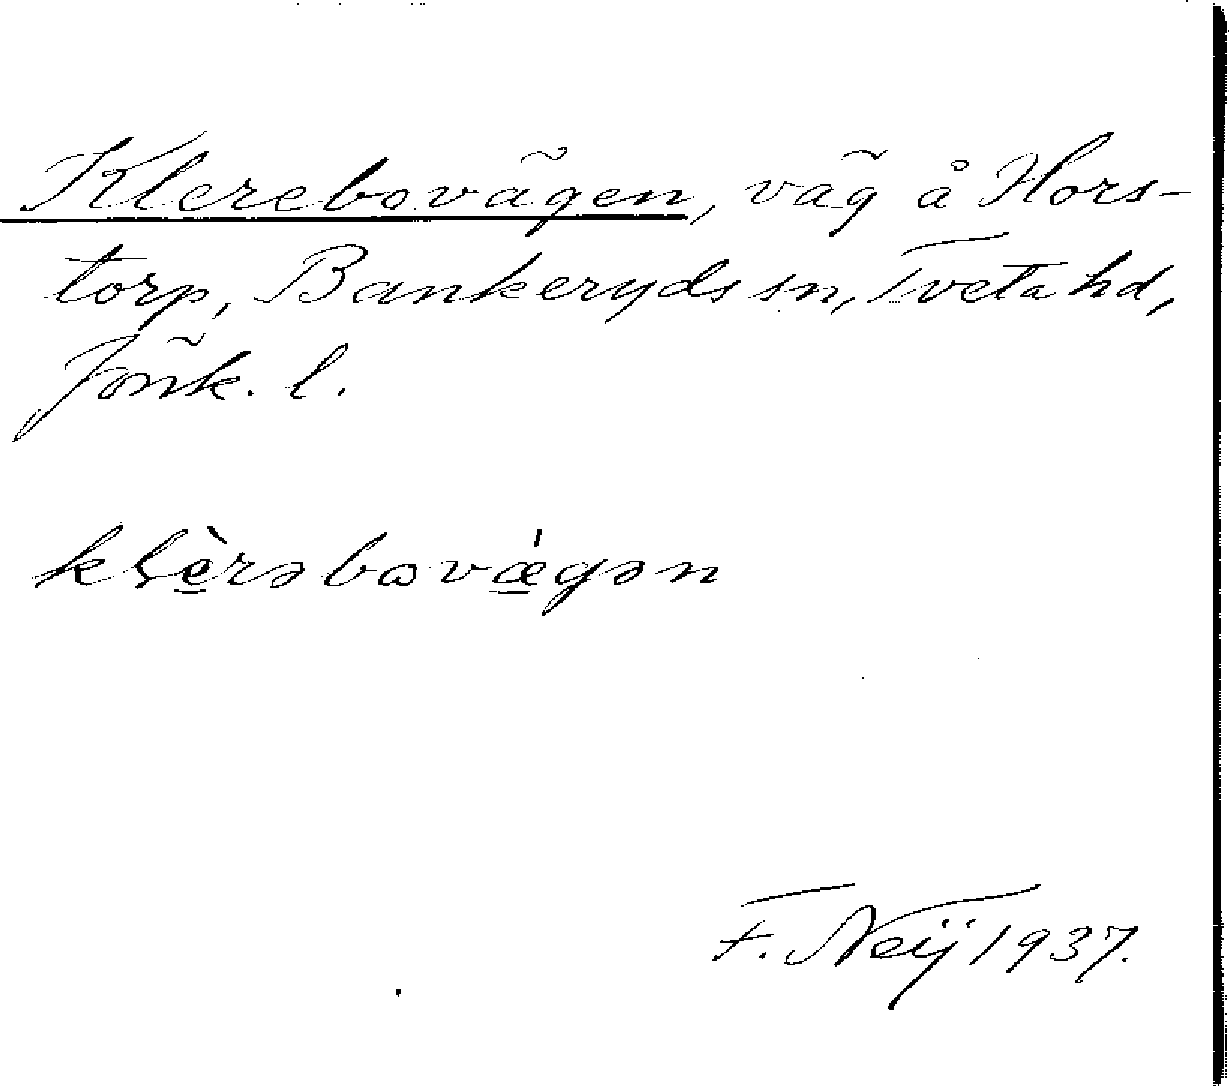 Klerebovägen, väg å Hors-
torp, Bankeryds sn, Tveta hd,
Jönk. l.
kḷè̲rəbωvǽ̲gən
F. Neij 1937.